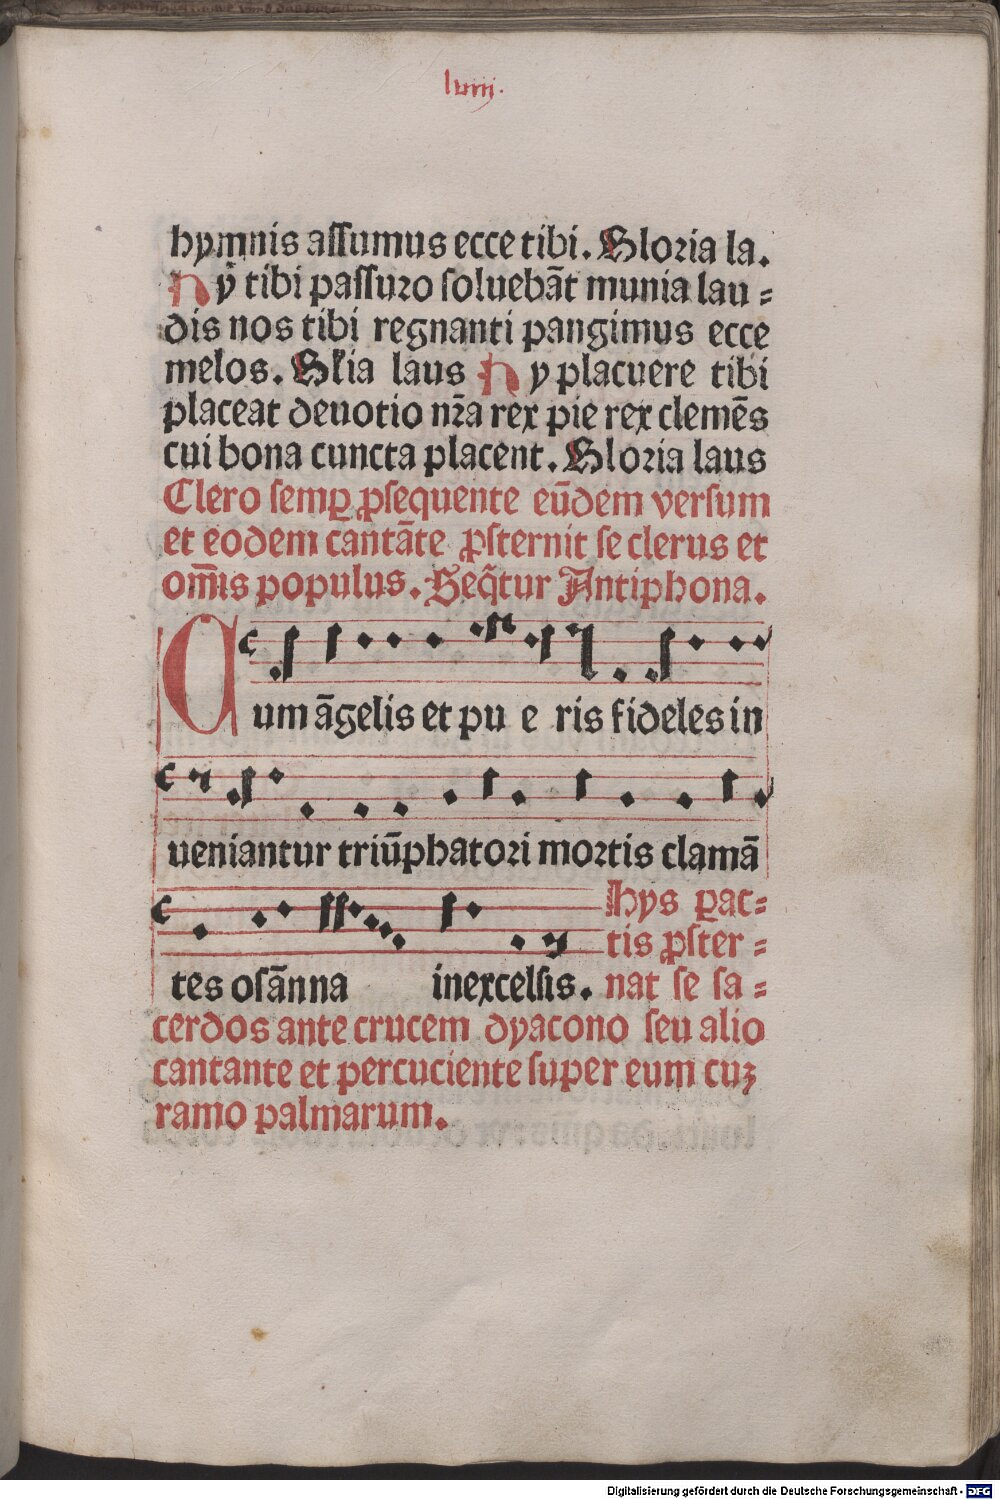 lviiij.
hymnis assumus ecce tibi. Gloria la.
Hÿ tibi passuro soluebāt munia lau⸗
dis nos tibi regnanti pangimus ecce
melos. Glia laus Hy placuere tibi
placeat deuotio nr̄a rex pie rex clemēs
cui bona cuncta placent. Gloria laus
Clero semꝑ ꝓsequente eūdem versum
et eodem cantāte ꝓsternit se clerus et
om̄is populus. Seq̄tur Antiphona.
Cum āgelis et pu e ris fideles in
ueniantur triūphatori mortis clamā
Hys ꝑac⸗
tis ꝓster⸗
tes osānna inexcelsis. nat se sa⸗
cerdos ante crucem dyacono seu alio
cantante et percuciente super eum cuꝫ
ramo palmarum.
Digitalisierung gefördert durch die Deutsche Forschungsgemeinschaft - DFG